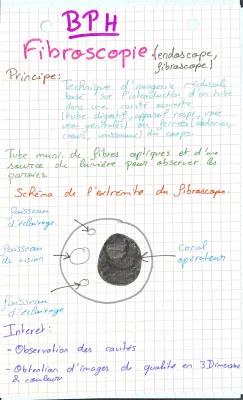 BPH
Fibroscopie: (endoscope,
fibroscope)
Principe:
Technique d'imagerie médicale
basé sur l'introduction d'un tube
dans une cavité ouverte
(tube digestif, appareil resp, voie
uro génitales) ou fermée (abdomen,
cœur, vaisseaux) du corps.
Tube muni de fibres optiques et d'une
source de lumière pour observer les
parois.
Schéma de l'extrémité du fibroscope.
faisceau
d'éclairage
faisceau
de vision
Canal
opérateur
faisceau
d'éclairage
Interet:
- Observation des cavités
- Obtention d'images de qualité en 3 Dimension
& couleur